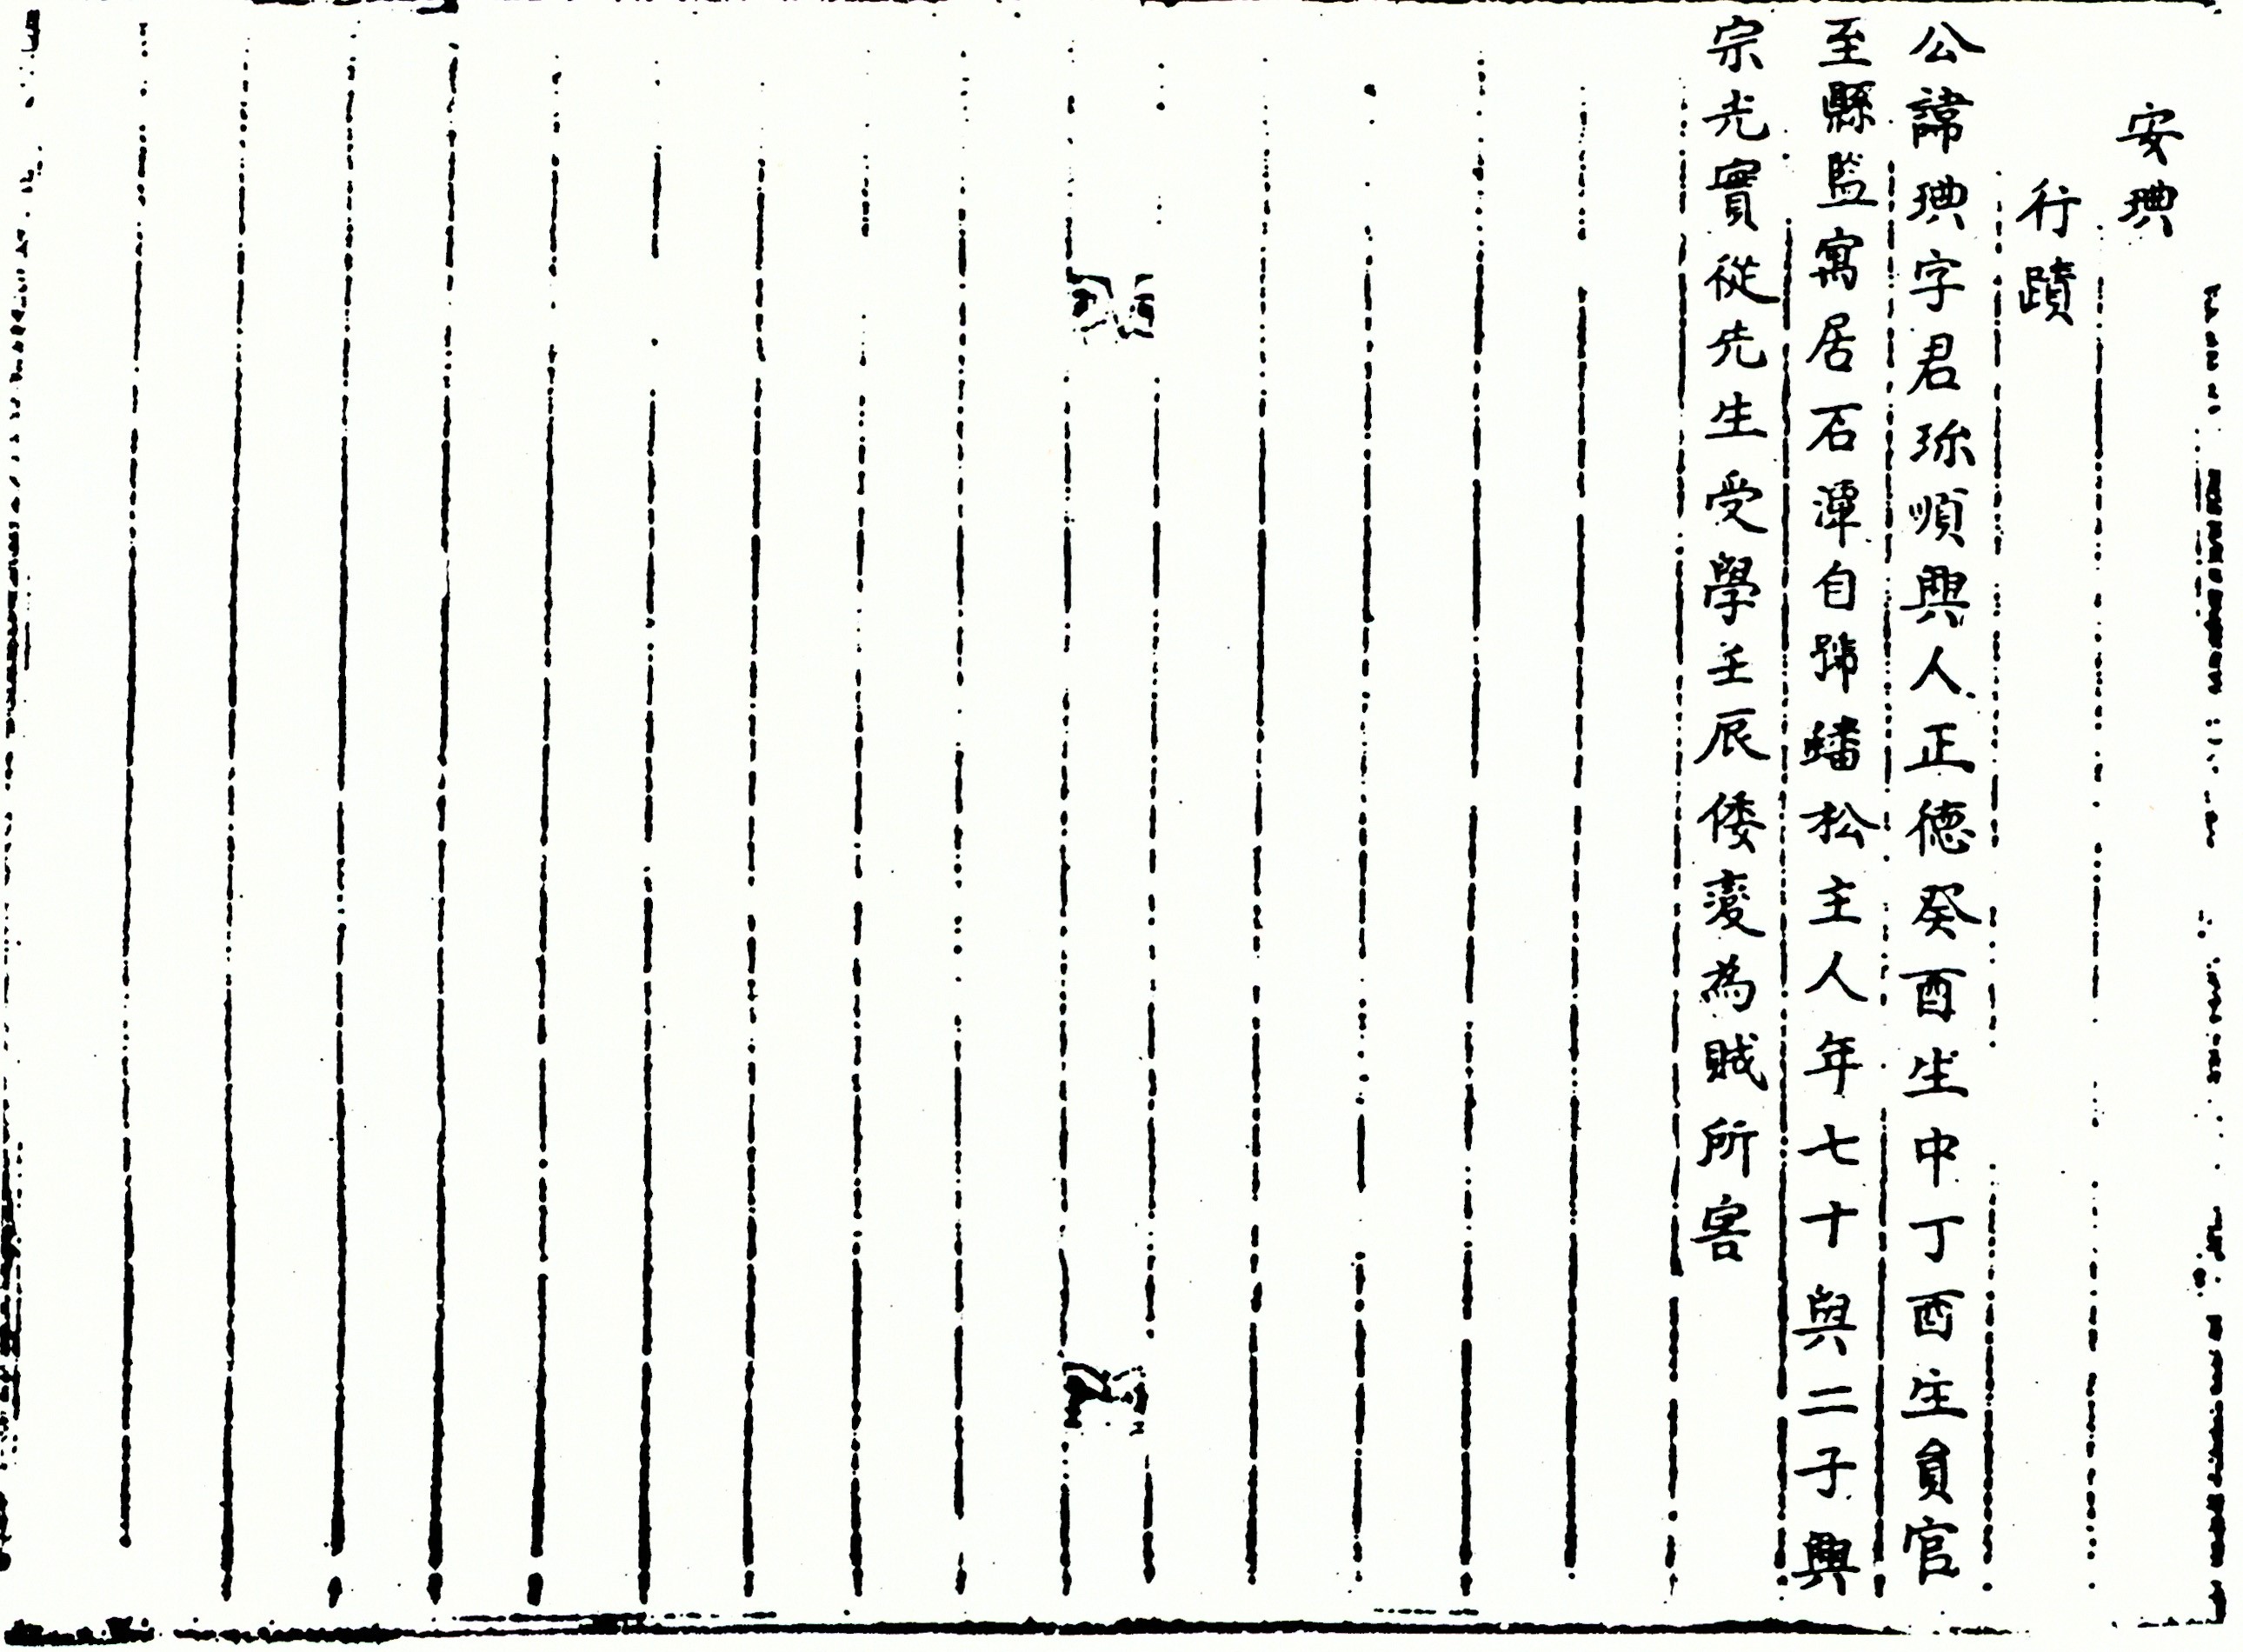 安琠
行蹟
公諱琠字君珎順興人正德癸酉生中丁酉生員官
至縣監寓居石潭自號蟠松主人年七十與二子興
宗光實從先生受學壬辰倭變為賊所害